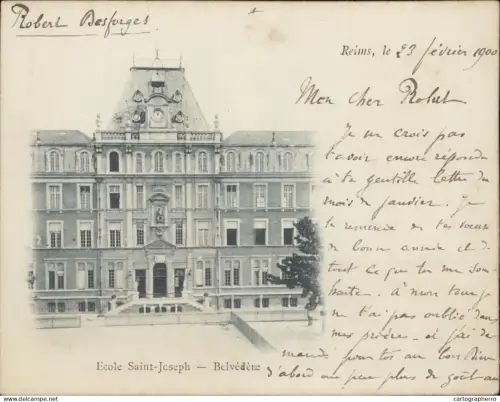 Robert Desforges
Reims, le 23 février 1900
Mon cher Robert
Je ne crois pas
t'avoir encore répondu
à ta gentille lettre du
mois de janvier. Je
te remercie de tes vœux
de bonne année et de
tout ce que tu me sou-
haite. à mon tour je
ne t'ai pas oublié dans
mes prières et j'ai de-
mandé pour toi au bon Dieu
d'abord un peu plus de goût au
Ecole Saint-Joseph — Belvédère
cartographero.com